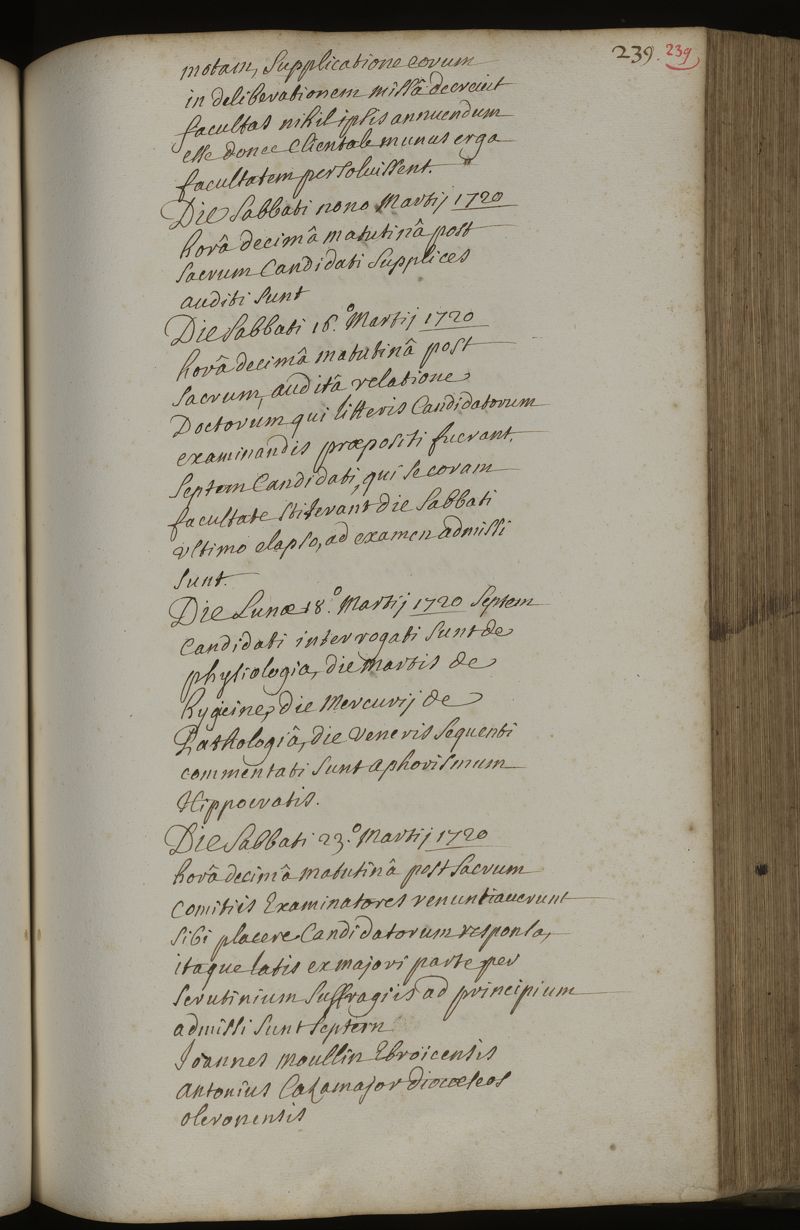 239. 239
motam, Supplicatione eorum
in deliberationem missâ decrevit
facultas nihil ipsis annuendum
esse donec Clientale munus erga
facultatem persoluissent.
Die Sabbati nono Martij 1720
horâ decimâ matutinâ post
Sacrum Candidati Supplices
auditi sunt
Die Sabbati 16.° Martij 1720
horâ decimâ matutinâ post
Sacrum, auditâ relatione
Doctorum qui litteris Candidatorum
examinandis præpositi fuerant.
Septem Candidati, qui se coram
facultate stiterant die Sabbati
ultimo elapso, ad examen admissi
sunt.
Die Lunæ 18.° Martij 1720 Septem
Candidati interrogati sunt de
physiologia, die martis de
hygieine, die Mercurij de
Pathologiâ, die veneris sequenti
commentati sunt aphorismum
Hippocratis.
Die Sabbati 23.° Martij 1720
horâ decimâ matutinâ post Sacrum
Comitiis Examinatores renuntiaverunt
sibi placere Candidatorum responsa,
itaque latis ex majori parte per
Scrutinium Suffragiis ad principium
admissi sunt Septem
Joannes Moullin Ebroïcensis
Antonius Cazamajor diœceseos
oleronensis